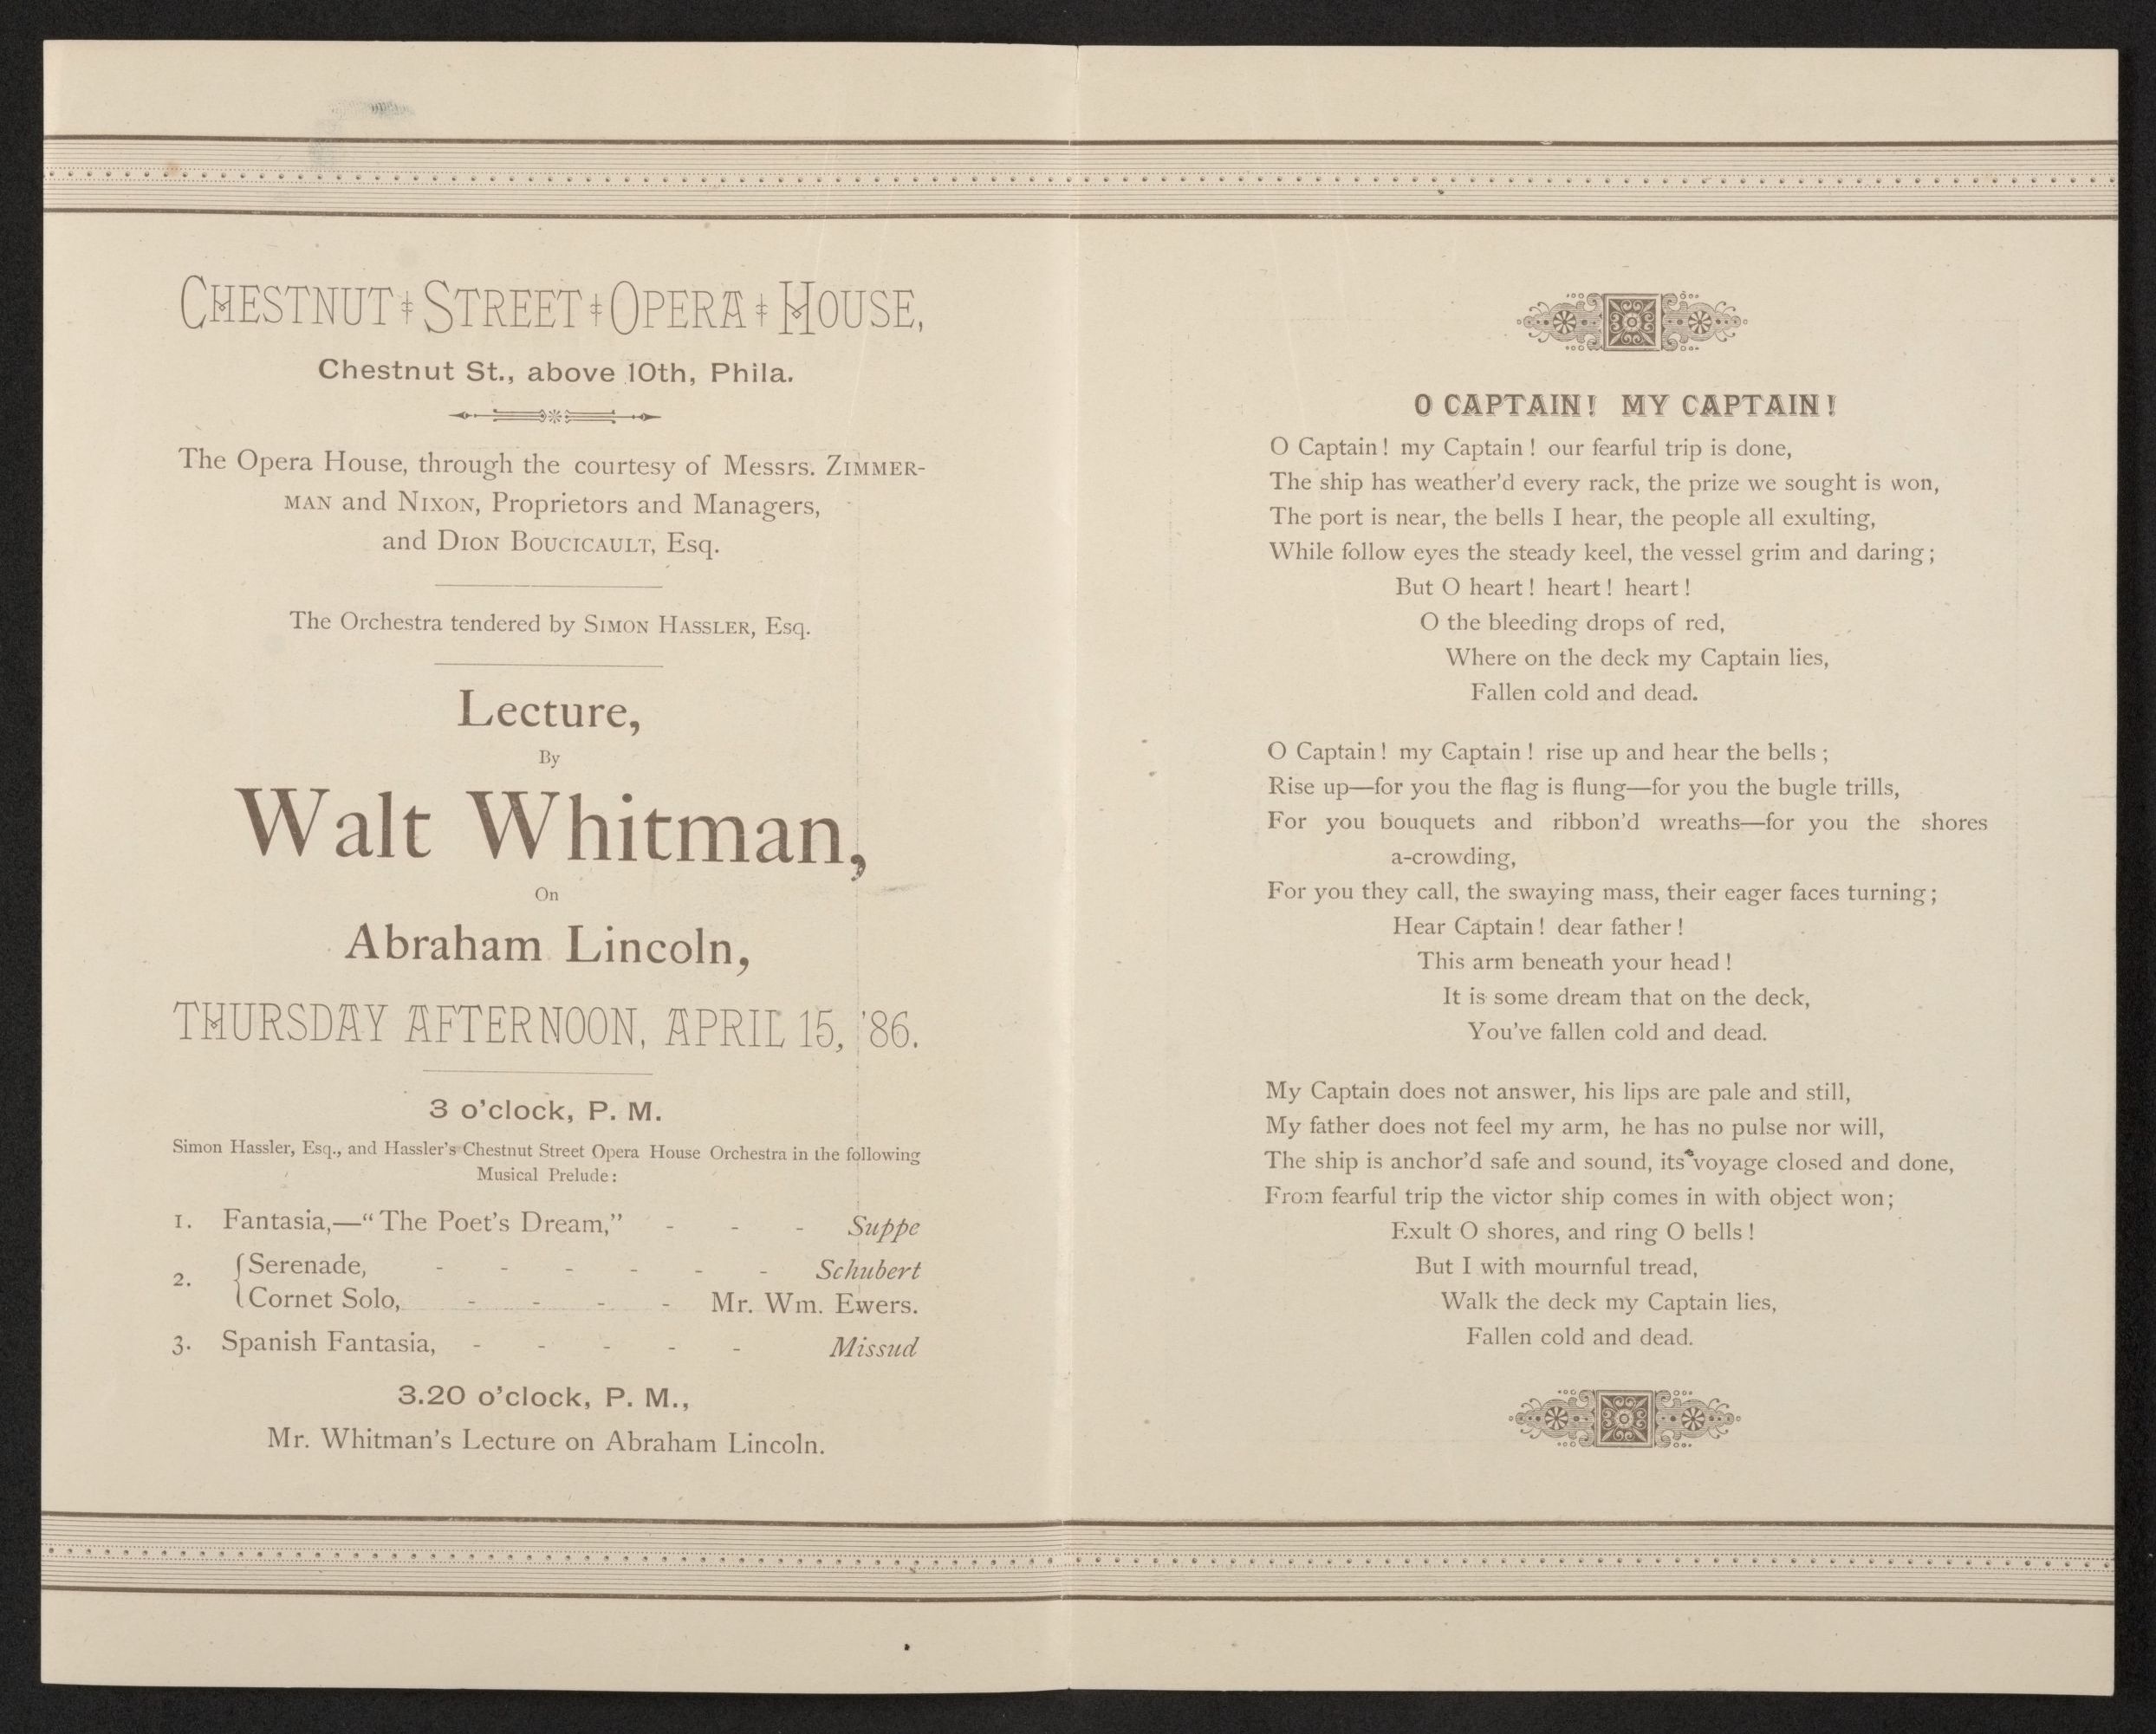 CHESTNUT ‡ STREET ‡ OPERA ‡ HOUSE,
Chestnut St., above 10th, Phila.
The Opera House, through the courtesy of Messrs. ZIMMER-
MAN and NIXON, Proprietors and Managers,
and DION BOUCICAULT, Esq.
The Orchestra tendered by SIMON HASSLER, Esq.
Lecture,
By
Walt Whitman,
On
Abraham Lincoln,
THURSDAY AFTERNOON, APRIL 15, '86.
3 o'clock, P. M.
Simon Hassler, Esq., and Hassler's Chestnut Street Opera House Orchestra in the following
Musical Prelude:
1. Fantasia,—“The Poet's Dream,” - - - Suppe
2. { Serenade, - - - - - - Schubert
Cornet Solo, - - - - Mr. Wm. Ewers.
3. Spanish Fantasia, - - - - - Missud
3.20 o'clock, P. M.,
Mr. Whitman's Lecture on Abraham Lincoln.
O CAPTAIN! MY CAPTAIN!
O Captain! my Captain! our fearful trip is done,
The ship has weather'd every rack, the prize we sought is won,
The port is near, the bells I hear, the people all exulting,
While follow eyes the steady keel, the vessel grim and daring;
But O heart! heart! heart!
O the bleeding drops of red,
Where on the deck my Captain lies,
Fallen cold and dead.
O Captain! my Captain! rise up and hear the bells;
Rise up—for you the flag is flung—for you the bugle trills,
For you bouquets and ribbon'd wreaths—for you the shores
a-crowding,
For you they call, the swaying mass, their eager faces turning;
Hear Captain! dear father!
This arm beneath your head!
It is some dream that on the deck,
You've fallen cold and dead.
My Captain does not answer, his lips are pale and still,
My father does not feel my arm, he has no pulse nor will,
The ship is anchor'd safe and sound, its voyage closed and done,
From fearful trip the victor ship comes in with object won;
Exult O shores, and ring O bells!
But I with mournful tread,
Walk the deck my Captain lies,
Fallen cold and dead.